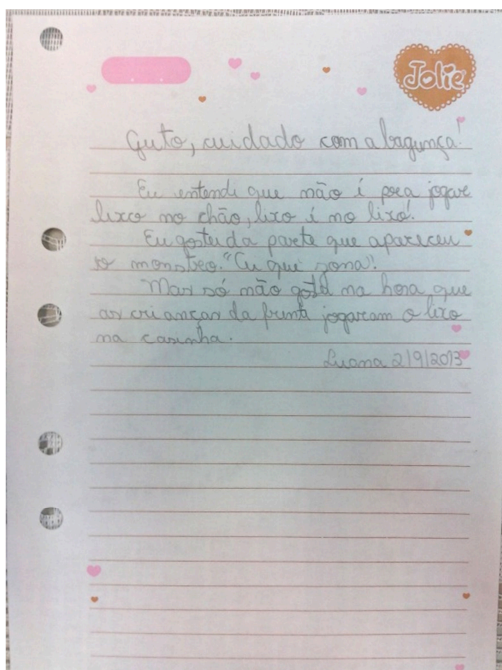 Jolie
Guto, cuidado com a bagunça!
Eu entendi que não é pra jogar
lixo no chão, lixo é no lixo!
Eu gostei da parte que apareceu
o monstro. "Eu qui zona!
Mas só não gostei na hora que
as crianças da frente jogaram o lixo
na casinha.
Luana 2/9/2013